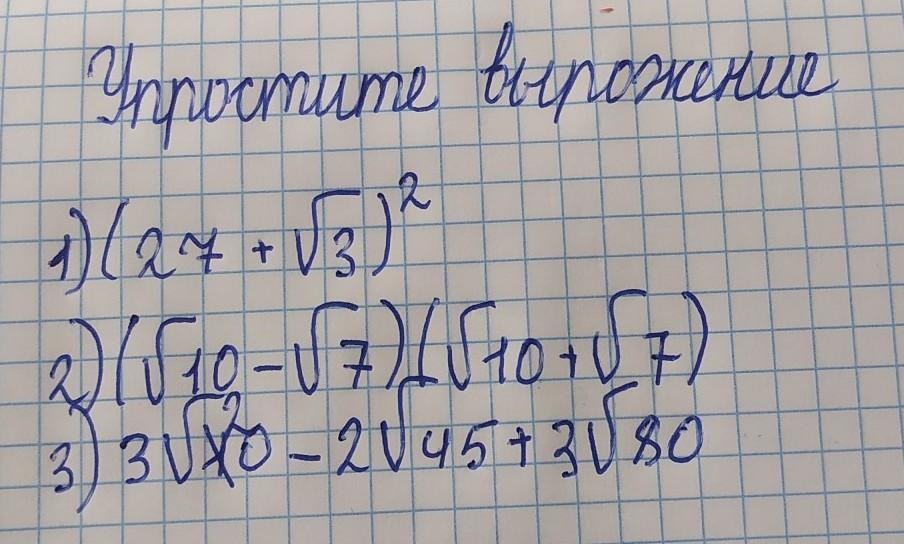 Упростите вырожение
1) (27 + √3)²
2) (√10 - √7)(√10 + √7)
3) 3√20 - 2√45 + 3√80